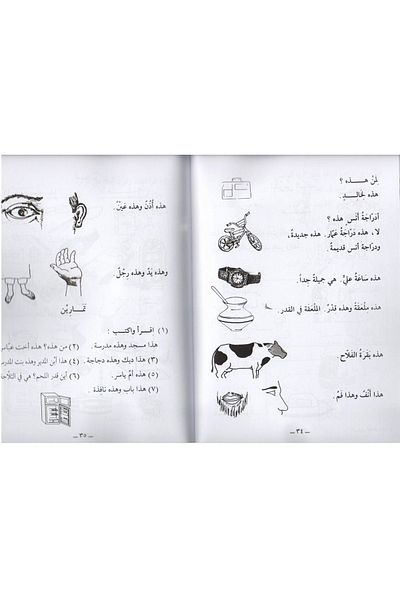 لِمَنْ هـذه ؟
هذه لخالدٍ.
أدَرَّاجَةُ أنَسٍ هذه ؟
لا، هذه دَرَّاجَةُ عَمَّارٍ. هذه جديدةٌ،
ودرَّاجةُ أنسٍ قديمةٌ.
هذه سَاعَةُ عليٍّ. هي جميلةٌ جداً.
هذه مِلْعَقَةٌ وهذه قِدْرٌ. المِلْعَقَة في القدر.
هذه بَقَرةُ الفَلَّاحِ.
هذا أَنْفٌ وهذا فَمٌ.
ــ ٣٤ ــ
هذه أُذُنٌ وهذه عَيْنٌ.
وهذه يَدٌ وهذه رِجْلٌ
تَمَارِيْن
(١) اقـرأ واكتـب :
هذا مسجد وهذه مدرسة. (٢) من هذه؟ هذه أخت عبَّاس
(٣) هذا ديك وهذه دجاجة. (٤) هذا ابْن المدير وهذه بنت المدرس
(٥) هذه أمّ ياسر. (٦) أين قدر اللحم؟ هي في الثلَّاجة
(٧) هذا باب وهذه نافذة.
ــ ٣٥ ــ